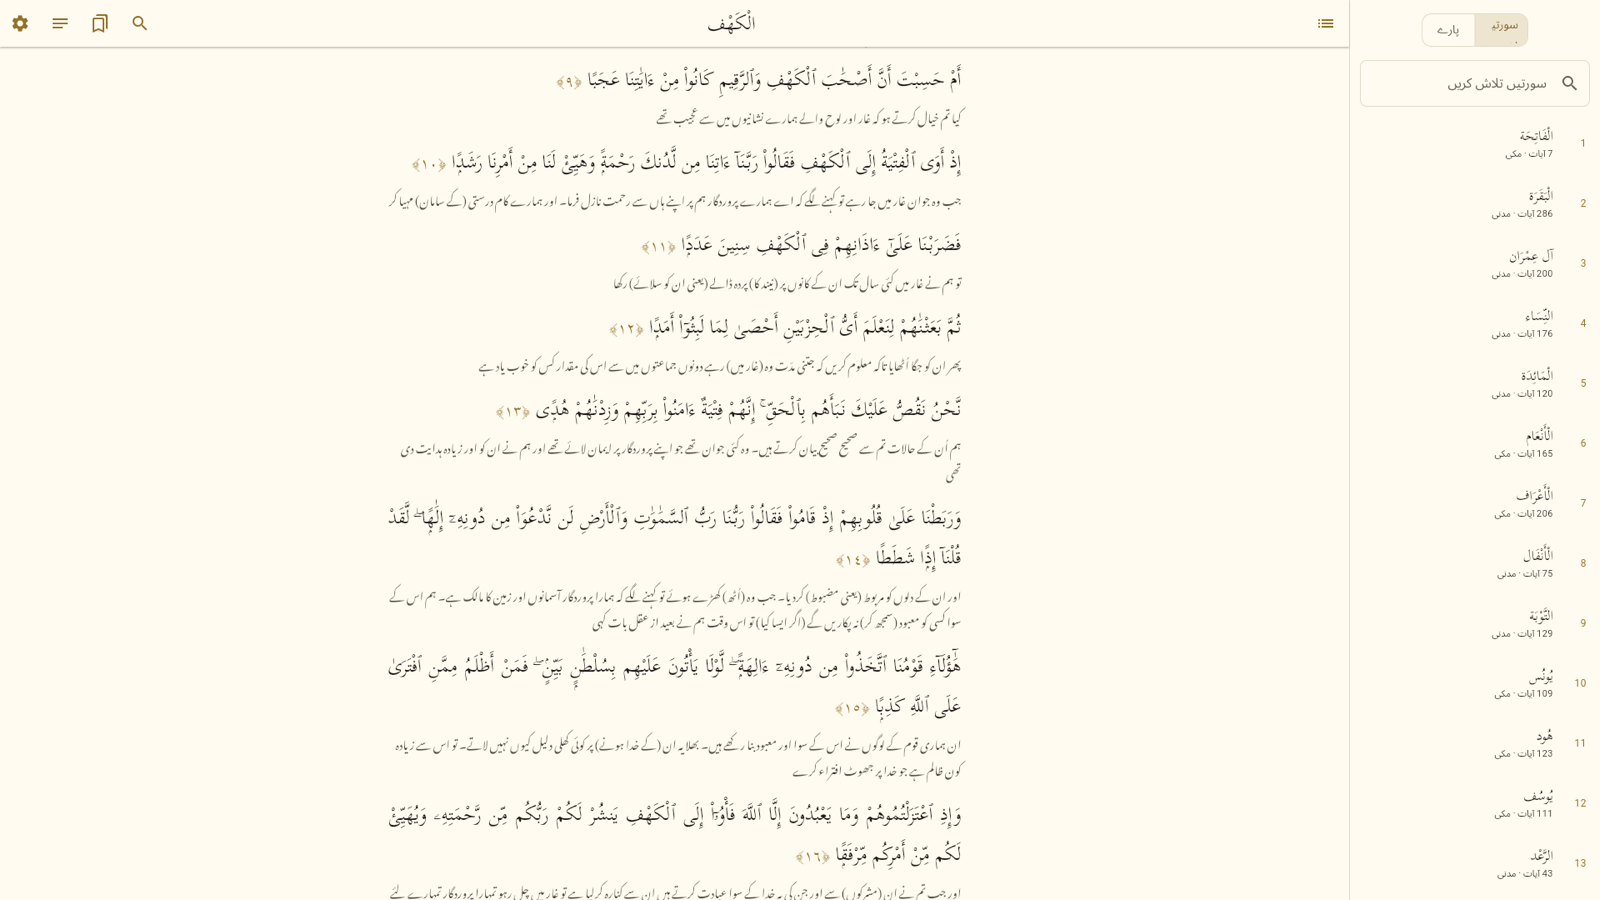 الْكَهْف
أَمْ حَسِبْتَ أَنَّ أَصْحَٰبَ ٱلْكَهْفِ وَٱلرَّقِيمِ كَانُوا۟ مِنْ ءَايَٰتِنَا عَجَبًا ﴿٩﴾
کیا تم خیال کرتے ہو کہ غار اور لوح والے ہمارے نشانیوں میں سے عجیب تھے
إِذْ أَوَى ٱلْفِتْيَةُ إِلَى ٱلْكَهْفِ فَقَالُوا۟ رَبَّنَآ ءَاتِنَا مِن لَّدُنكَ رَحْمَةً وَهَيِّئْ لَنَا مِنْ أَمْرِنَا رَشَدًا ﴿١٠﴾
جب وہ جوان غار میں جا رہے تو کہنے لگے کہ اے ہمارے پروردگار ہم پر اپنے ہاں سے رحمت نازل فرما۔ اور ہمارے کام درستی (کے سامان) مہیا کر
فَضَرَبْنَا عَلَىٰٓ ءَاذَانِهِمْ فِى ٱلْكَهْفِ سِنِينَ عَدَدًا ﴿١١﴾
تو ہم نے غار میں کئی سال تک ان کے کانوں پر (نیند کا) پردہ ڈالے (یعنی ان کو سلائے) رکھا
ثُمَّ بَعَثْنَٰهُمْ لِنَعْلَمَ أَىُّ ٱلْحِزْبَيْنِ أَحْصَىٰ لِمَا لَبِثُوٓا۟ أَمَدًا ﴿١٢﴾
پھر ان کو جگا اُٹھایا تاکہ معلوم کریں کہ جتنی مدّت وہ (غار میں) رہے دونوں جماعتوں میں سے اس کی مقدار کس کو خوب یاد ہے
نَّحْنُ نَقُصُّ عَلَيْكَ نَبَأَهُم بِٱلْحَقِّ ۚ إِنَّهُمْ فِتْيَةٌ ءَامَنُوا۟ بِرَبِّهِمْ وَزِدْنَٰهُمْ هُدًى ﴿١٣﴾
ہم اُن کے حالات تم سے صحیح صحیح بیان کرتے ہیں۔ وہ کئی جوان تھے جو اپنے پروردگار پر ایمان لائے تھے اور ہم نے ان کو اور زیادہ ہدایت دی
تھی
وَرَبَطْنَا عَلَىٰ قُلُوبِهِمْ إِذْ قَامُوا۟ فَقَالُوا۟ رَبُّنَا رَبُّ ٱلسَّمَٰوَٰتِ وَٱلْأَرْضِ لَن نَّدْعُوَا۟ مِن دُونِهِۦٓ إِلَٰهًا ۖ لَّقَدْ
قُلْنَآ إِذًا شَطَطًا ﴿١٤﴾
اور ان کے دلوں کو مربوط (یعنی مضبوط) کردیا۔ جب وہ (اُٹھ) کھڑے ہوئے تو کہنے لگے کہ ہمارا پروردگار آسمانوں اور زمین کا مالک ہے۔ ہم اس کے
سوا کسی کو معبود (سمجھ کر) نہ پکاریں گے (اگر ایسا کیا) تو اس وقت ہم نے بعید از عقل بات کہی
هَٰٓؤُلَآءِ قَوْمُنَا ٱتَّخَذُوا۟ مِن دُونِهِۦٓ ءَالِهَةً ۖ لَّوْلَا يَأْتُونَ عَلَيْهِم بِسُلْطَٰنٍۭ بَيِّنٍ ۖ فَمَنْ أَظْلَمُ مِمَّنِ ٱفْتَرَىٰ
عَلَى ٱللَّهِ كَذِبًا ﴿١٥﴾
ان ہماری قوم کے لوگوں نے اس کے سوا اور معبود بنا رکھے ہیں۔ بھلا یہ ان (کے خدا ہونے) پر کوئی کھلی دلیل کیوں نہیں لاتے۔ تو اس سے زیادہ
کون ظالم ہے جو خدا پر جھوٹ افتراء کرے
وَإِذِ ٱعْتَزَلْتُمُوهُمْ وَمَا يَعْبُدُونَ إِلَّا ٱللَّهَ فَأْوُۥٓا۟ إِلَى ٱلْكَهْفِ يَنشُرْ لَكُمْ رَبُّكُم مِّن رَّحْمَتِهِۦ وَيُهَيِّئْ
لَكُم مِّنْ أَمْرِكُم مِّرْفَقًا ﴿١٦﴾
اور جب تم نے ان (مشرکوں) سے اور جن کی یہ خدا کے سوا عبادت کرتے ہیں ان سے کنارہ کرلیا ہے تو غار میں چل رہو تمہارا پروردگار تمہارے لئے
سورتیں
پارے
سورتیں تلاش کریں
1
الْفَاتِحَة
7 آیات · مکی
2
الْبَقَرَة
286 آیات · مدنی
3
آلِ عِمْرَان
200 آیات · مدنی
4
النِّسَاء
176 آیات · مدنی
5
الْمَائِدَة
120 آیات · مدنی
6
الْأَنْعَام
165 آیات · مکی
7
الْأَعْرَاف
206 آیات · مکی
8
الْأَنْفَال
75 آیات · مدنی
9
التَّوْبَة
129 آیات · مدنی
10
يُونُس
109 آیات · مکی
11
هُود
123 آیات · مکی
12
يُوسُف
111 آیات · مکی
13
الرَّعْد
43 آیات · مدنی